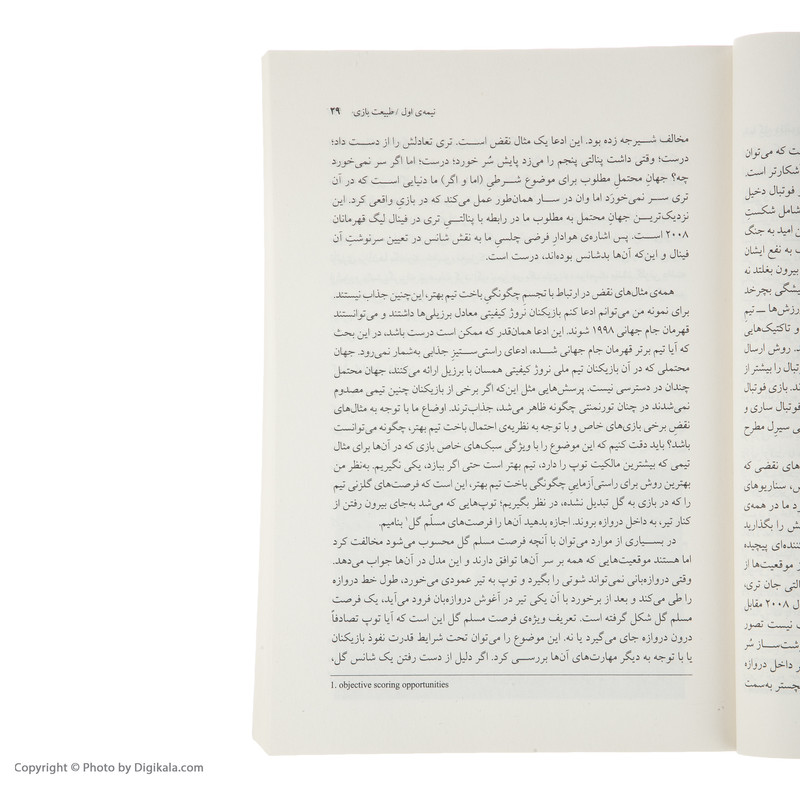 نیمه‌ی اول / طبیعت بازی؛ ۲۹
مخالف شیرجه زده بود. این ادعا یک مثال نقض است. تری تعادلش را از دست داد؛
درست؛ وقتی داشت پنالتی پنجم را می‌زد پایش سُر خورد؛ درست؛ اما اگر سر نمی‌خورد
چه؟ جهانِ محتملِ مطلوب برای موضوع شرطیِ (اما و اگر) ما دنیایی است که در آن
تری سر نمی‌خورَد اما وان در سار همان‌طور عمل می‌کند که در بازیِ واقعی کرد. این
نزدیک‌ترین جهانِ محتمل به مطلوب ما در رابطه با پنالتیِ تری در فینال لیگ قهرمانان
۲۰۰۸ است. پس اشاره‌ی هوادارِ فرضی چلسیِ ما به نقش شانس در تعیین سرنوشتِ آن
فینال و این‌که آن‌ها بدشانس بوده‌اند، درست است.
همه‌ی مثال‌های نقض در ارتباط با تجسمِ چگونگیِ باخت تیم بهتر، این‌چنین جذاب نیستند.
برای نمونه من می‌توانم ادعا کنم بازیکنان نروژ کیفیتی معادل برزیلی‌ها داشتند و می‌توانستند
قهرمان جام جهانی ۱۹۹۸ شوند. این ادعا همان‌قدر که ممکن است درست باشد، در این بحث
که آیا تیم برتر قهرمان جام جهانی شده، ادعای راستی‌ستیزِ جذابی به‌شمار نمی‌رود. جهان
محتملی که در آن بازیکنان تیم ملی نروژ کیفیتی همسان با برزیل ارائه می‌کنند، جهان محتمل
چندان در دسترسی نیست. پرسش‌هایی مثل این‌که اگر برخی از بازیکنان چنین تیمی مصدوم
نمی‌شدند در چنان تورنمنتی چگونه ظاهر می‌شد، جذاب‌ترند. اوضاع ما با توجه به مثال‌های
نقضِ برخی بازی‌های خاص و با توجه به نظریه‌ی احتمال باخت تیم بهتر، چگونه می‌توانست
باشد؟ باید دقت کنیم که این موضوع را با ویژگی سبک‌های خاص بازی که در آن‌ها برای مثال
تیمی که بیشترین مالکیت توپ را دارد، تیم بهتر است حتی اگر ببازد، یکی نگیریم. به‌نظر من
بهترین روش برای راستی‌آزماییِ چگونگی باخت تیم بهتر، این است که فرصت‌های گلزنی تیم
را که در بازی به گل تبدیل نشده، در نظر بگیریم؛ توپ‌هایی که می‌شد به‌جای بیرون رفتن از
کنار تیر، به داخل دروازه بروند. اجازه بدهید آن‌ها را فرصت‌های مسلّم گل۱ بنامیم.
در بسیاری از موارد می‌توان با آنچه فرصت مسلم گل محسوب می‌شود مخالفت کرد
اما هستند موقعیت‌هایی که همه بر سر آن‌ها توافق دارند و این مدل در آن‌ها جواب می‌دهد.
وقتی دروازه‌بانی نمی‌تواند شوتی را بگیرد و توپ به تیر عمودی می‌خورد، طول خط دروازه
را طی می‌کند و بعد از برخورد با آن یکی تیر در آغوش دروازه‌بان فرود می‌آید، یک فرصت
مسلم گل شکل گرفته است. تعریف ویژه‌ی فرصت مسلم گل این است که آیا توپ تصادفاً
درون دروازه جای می‌گیرد یا نه. این موضوع را می‌توان تحت شرایط قدرت نفوذ بازیکنان
یا با توجه به دیگر مهارت‌های آن‌ها بررسی کرد. اگر دلیل از دست رفتن یک شانس گل،
1. objective scoring opportunities
ت که می‌توان
شکارتر است.
ر فوتبال دخیل
شامل شکستِ
ن امید به جنگ
ب به نفع ایشان
بیرون بغلتد نه
یشگی بچرخد
رزش‌ها ــ تیم
و تاکتیک‌هایی
د. روش ارسال
تبال را بیشتر از
ند. بازی فوتبال
فوتبال ساری و
ی سیرل مطرح
های نقضی که
ص، سناریوهای
د ما در همه‌ی
ش را بگذارید
ننده‌ای پیچیده
ز موقعیت‌ها از
التی جان تری،
ل ۲۰۰۸ مقابل
ت نیست تصور
شت‌ساز سُر
ر داخل دروازه
چستر به‌سمت
Copyright © Photo by Digikala.com